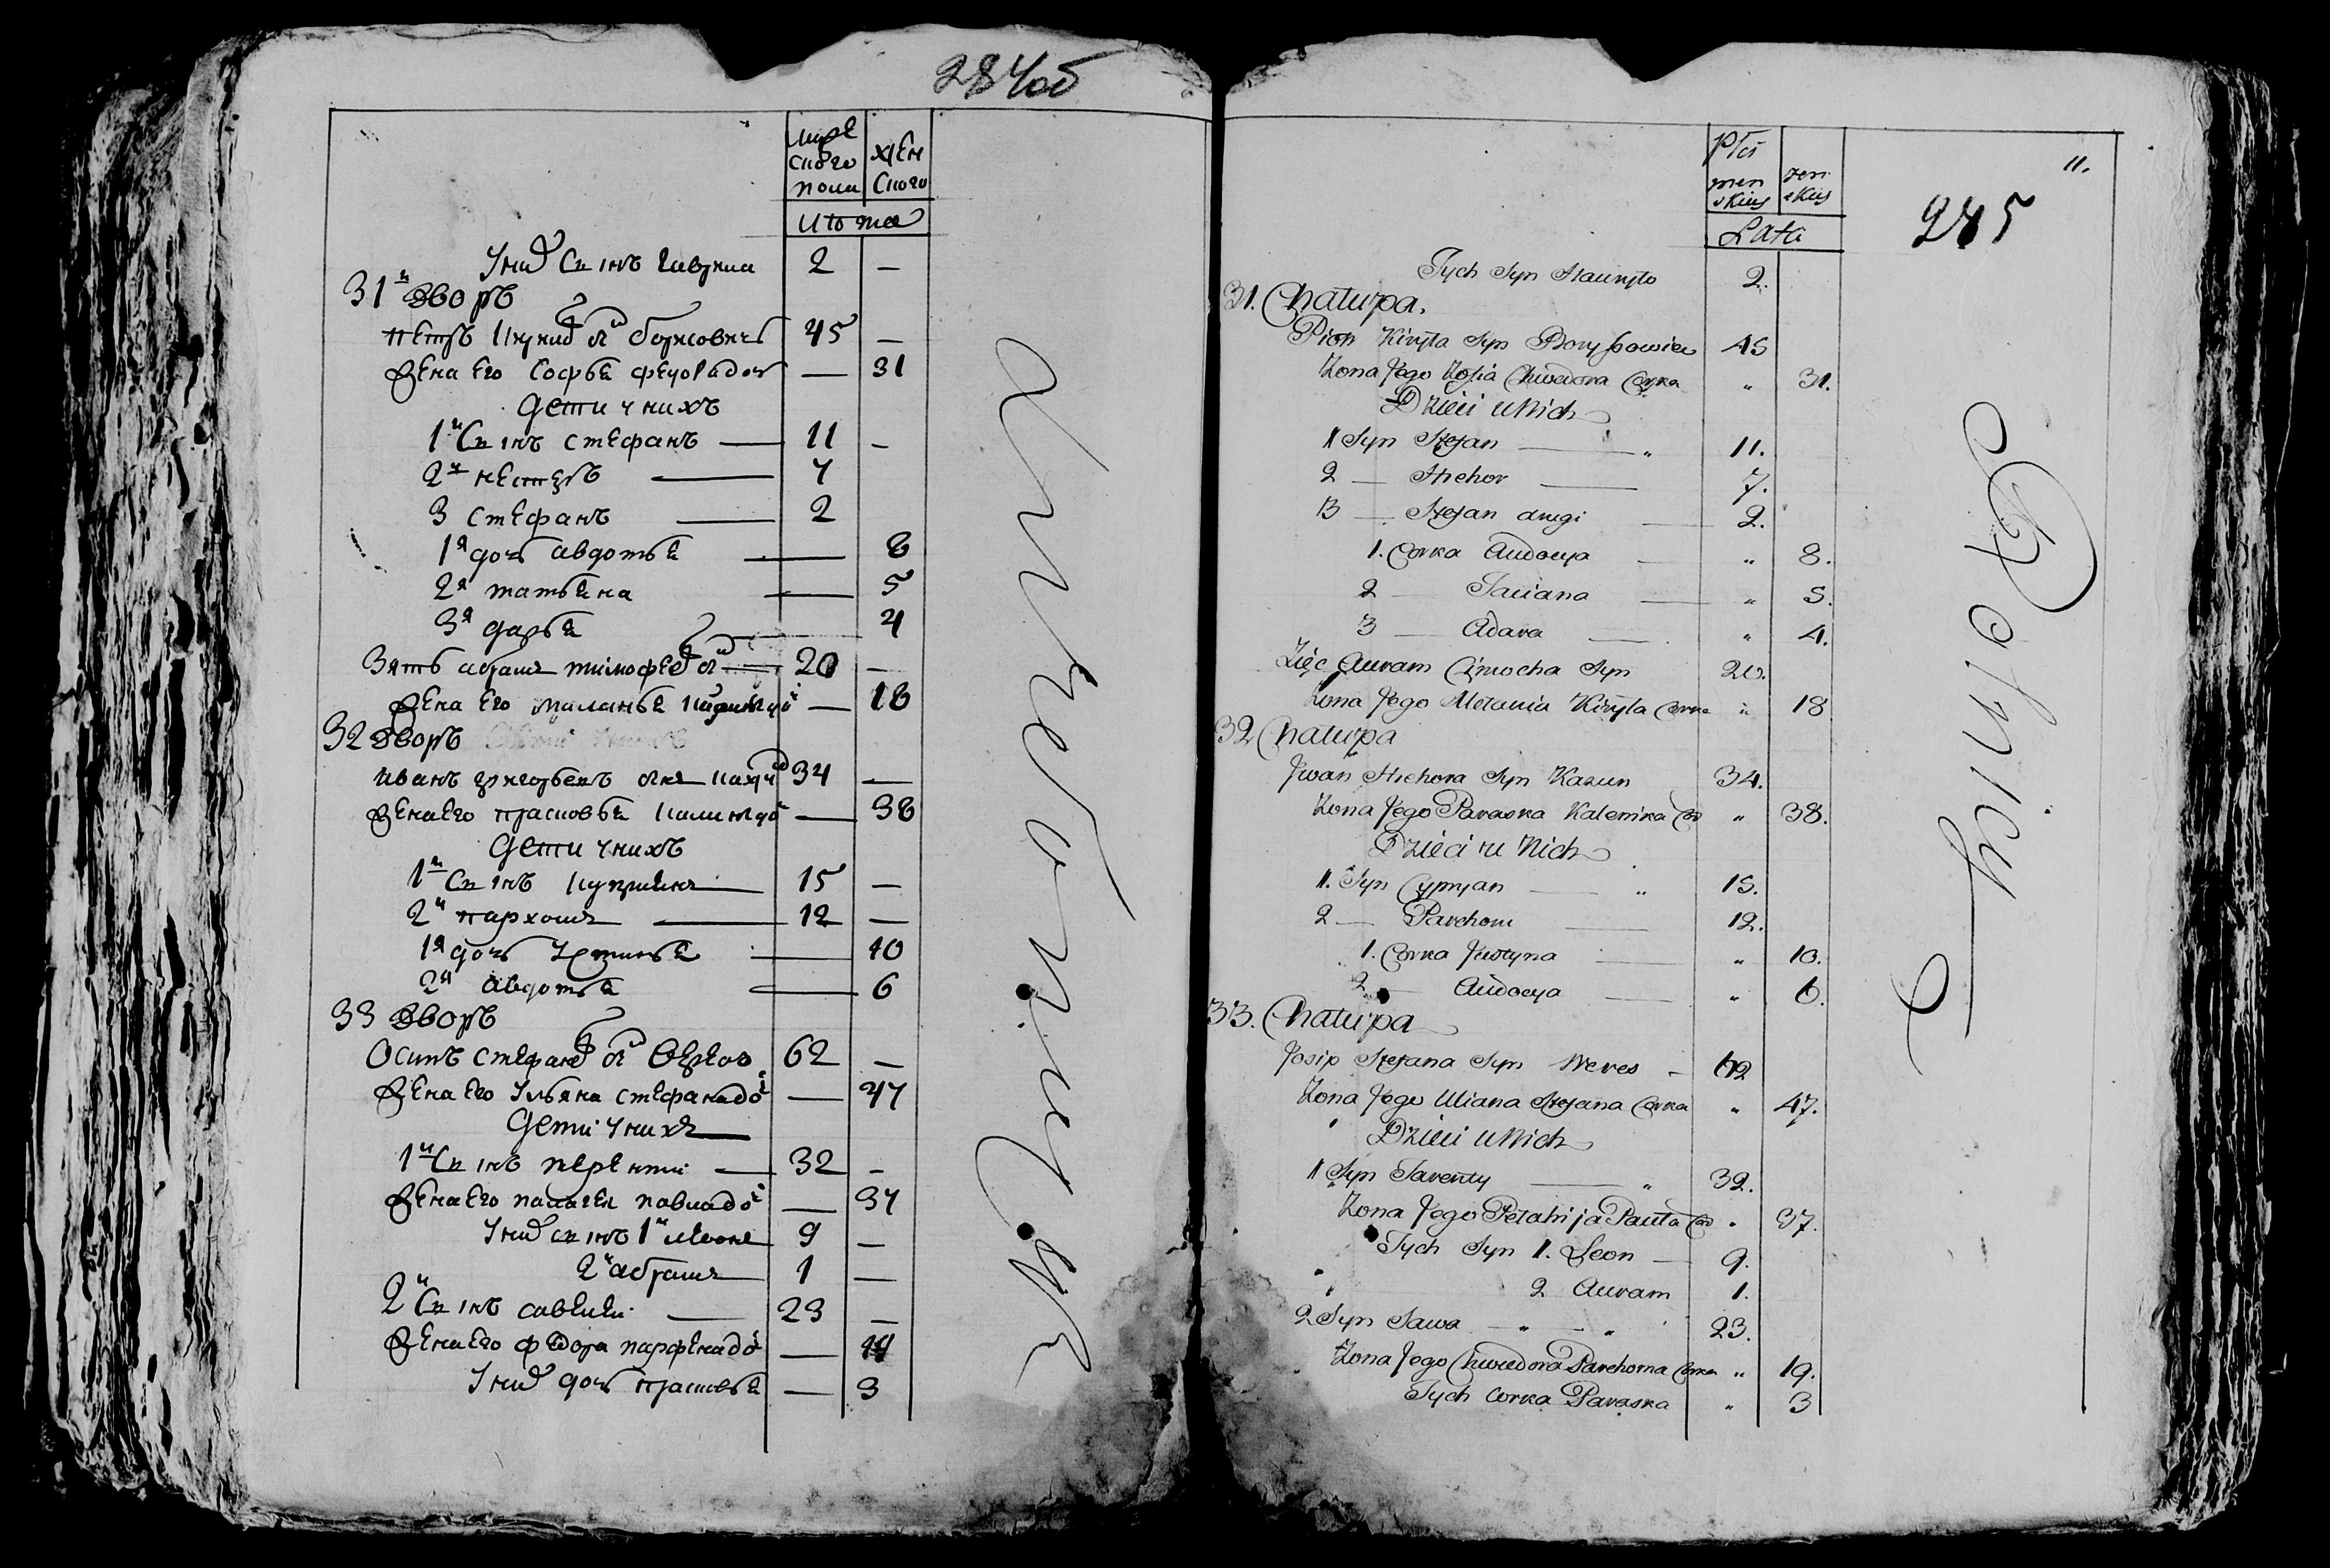 284об
мужеского пола
женского
Лета
У них сын Гаврила 2 —
31й Дворъ
Петръ Кирилов сын Борисовичъ 45 —
Жена его Софья Федорова доч — 31
Дети у нихъ
1й Сынъ Стефанъ — 11 —
2й Нестеръ — 7
3 Стефанъ — 2
1я дочь Авдотья — 8
2я Татьяна — 5
3я Дарья 4
Зять Абрам Тимофеев сын — 20 —
Жена его Маланья Кирилова до — 18
32 Дворъ
Иванъ Григорьевъ сын Казун 34 —
Жена его Прасковья Калин до — 38
Дети у нихъ
1й Сынъ Куприян — 15 —
2й Пархом — 12 —
1я дочь Устинья — 10
2я Авдотья — 6
33 Дворъ
Осипъ Стефанов сын Верес 62 —
Жена его Ульяна Стефана до — 47
Дети у них —
1й Сынъ Терентий — 32 —
Жена его Палагея Павла до — 37
У них сынъ 1й Леон 9 —
2й Абрам 1 —
2й Сынъ Савелий — 23 —
Жена его Федора Парфена до — 19
У них дочь Прасковья — 3
Płci
męnskiey
żenskiey
Lata
11.
285
Tych Syn Hauryło 2.
31. Chałupa.
Piotr Kiryła Syn Borysowicz 45
Żona Jego Zofia Chwedora Corka " 31.
Dzieci u Nich
1 Syn Stefan — " 11.
2 — Hrehor — 7.
3 — Stefan drugi — 2.
1. Corka Audocya — " 8.
2 — Taciana — " 5.
3 — Adara — " 4.
Zięć Auram Cimocha Syn 20.
Żona Jego Melania Kiryła Corka " 18
32 Chałupa
Jwan Hrehora Syn Kazun 34.
Żona Jego Paraska Kalenika Cor " 38.
Dzieci u Nich
1. Syn Cypryan — " 15.
2 — Parchom — 12.
1. Corka Justyna — " 10.
2 — Audocya — " 6.
33. Chałupa
Josip Stefana Syn Weres — 62
Żona Jego Uliana Stefana Corka " 47.
Dzieci u Nich
1 Syn Tarenty — " 32.
Żona Jego Pełahija Pauła Cor " 37.
Tych Syn 1. Leon — 9.
2 Auram 1.
2 Syn Sawa — " — " 23.
Żona Jego Chwedora Parchoma Corka " 19.
Tych Corka Paraska " 3